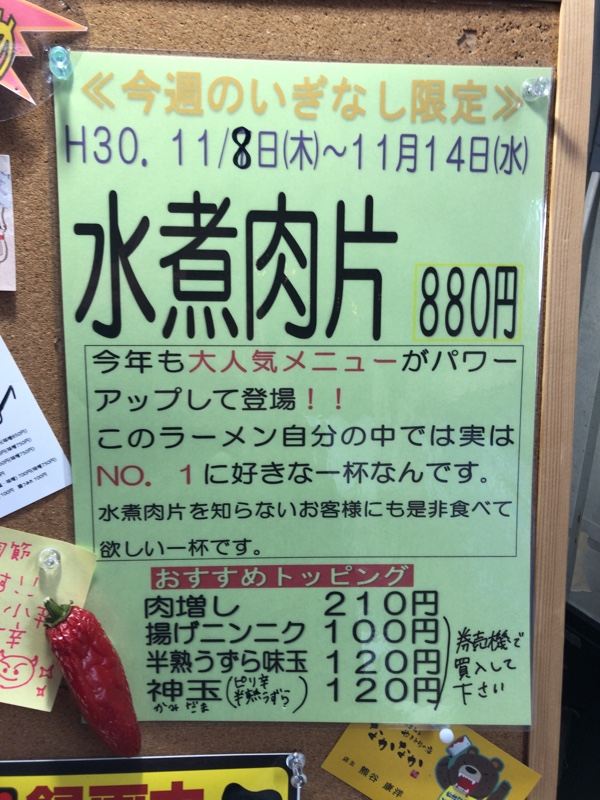 ≪今週のいぎなし限定≫
H30. 11/8日(木)～11月14日(水)
水煮肉片 880円
今年も大人気メニューがパワー
アップして登場！！
このラーメン自分の中では実は
NO．1に好きな一杯なんです。
水煮肉片を知らないお客様にも是非食べて
欲しい一杯です。
おすすめトッピング
肉増し 210円
揚げニンニク 100円
半熟うずら味玉 120円
神玉(ピリ辛半熟うずら) 120円
かみだま
券売機で
買入して
下さい
なかなか
熊谷 康洋